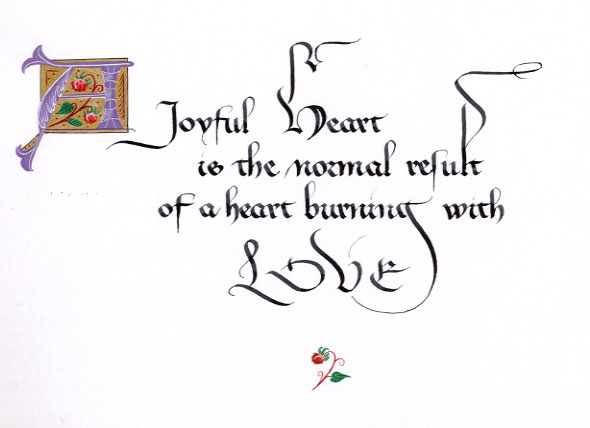 A Joyful Heart
is the normal result
of a heart burning with
LOVE